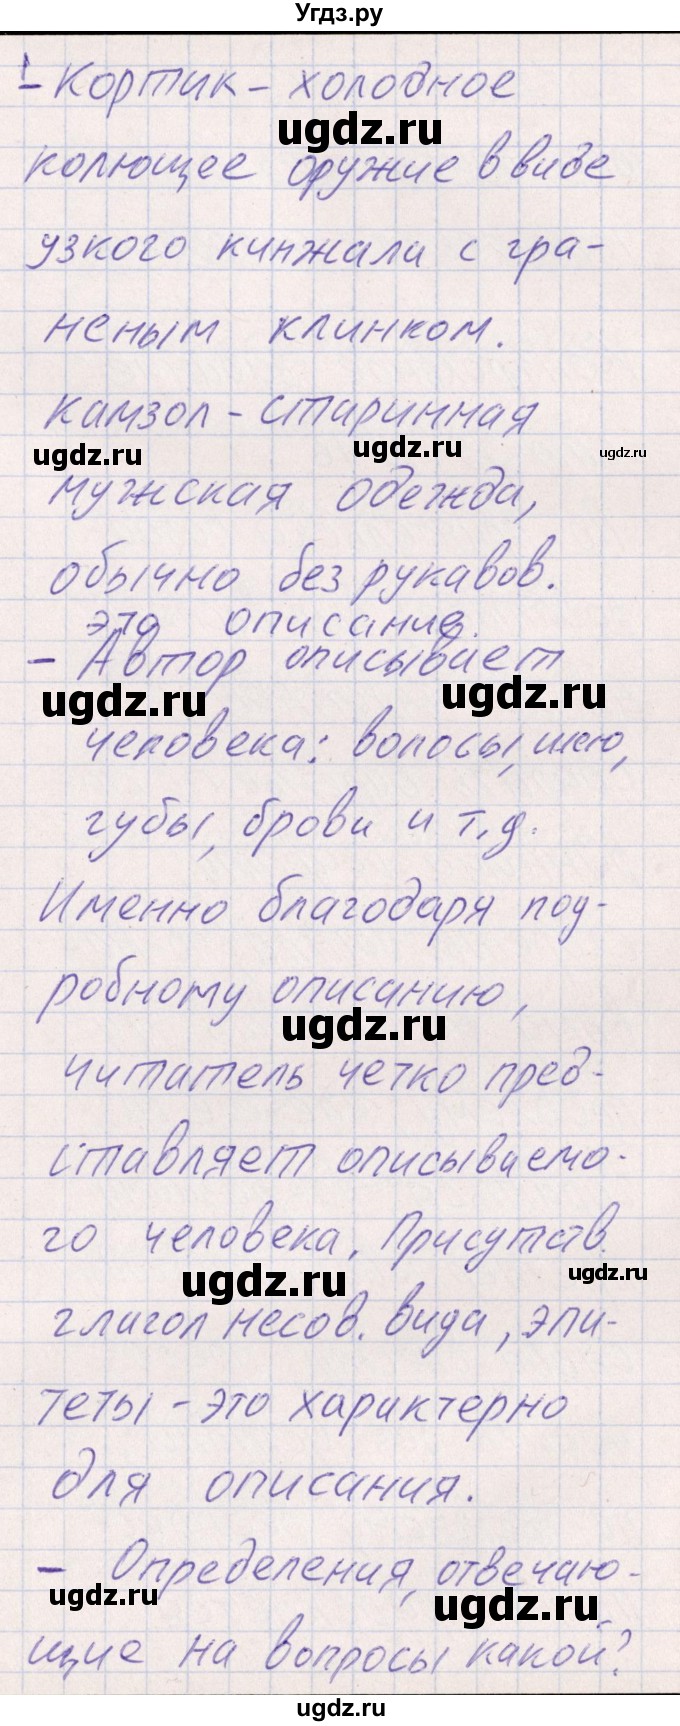 Угдз.ру
!
- Кортик - холодное
ugdz.ru
колющее оружие в виде
узкого кинжали с гра-
неным клинком.
камзол - старинная
ugdz.ru ugdz.ru ugdz.ru
мужская одежда,
обычно без рукавов.
это описание.
- Автор описывает
ugdz.ru ugdz.ru
человека: волосы, шею,
губы, брови и т.д.
Именно благодаря под-
робному описанию,
ugdz.ru
читатель четко пред-
ставляет описываемо-
го человека. Присутств.
ugdz.ru ugdz.ru
глагол несов. вида, эпи-
теты - это характерно
для описания.
- Определения, отвечаю-
ugdz.ru ugdz.ru
щие на вопросы какой?
ugdz.ru